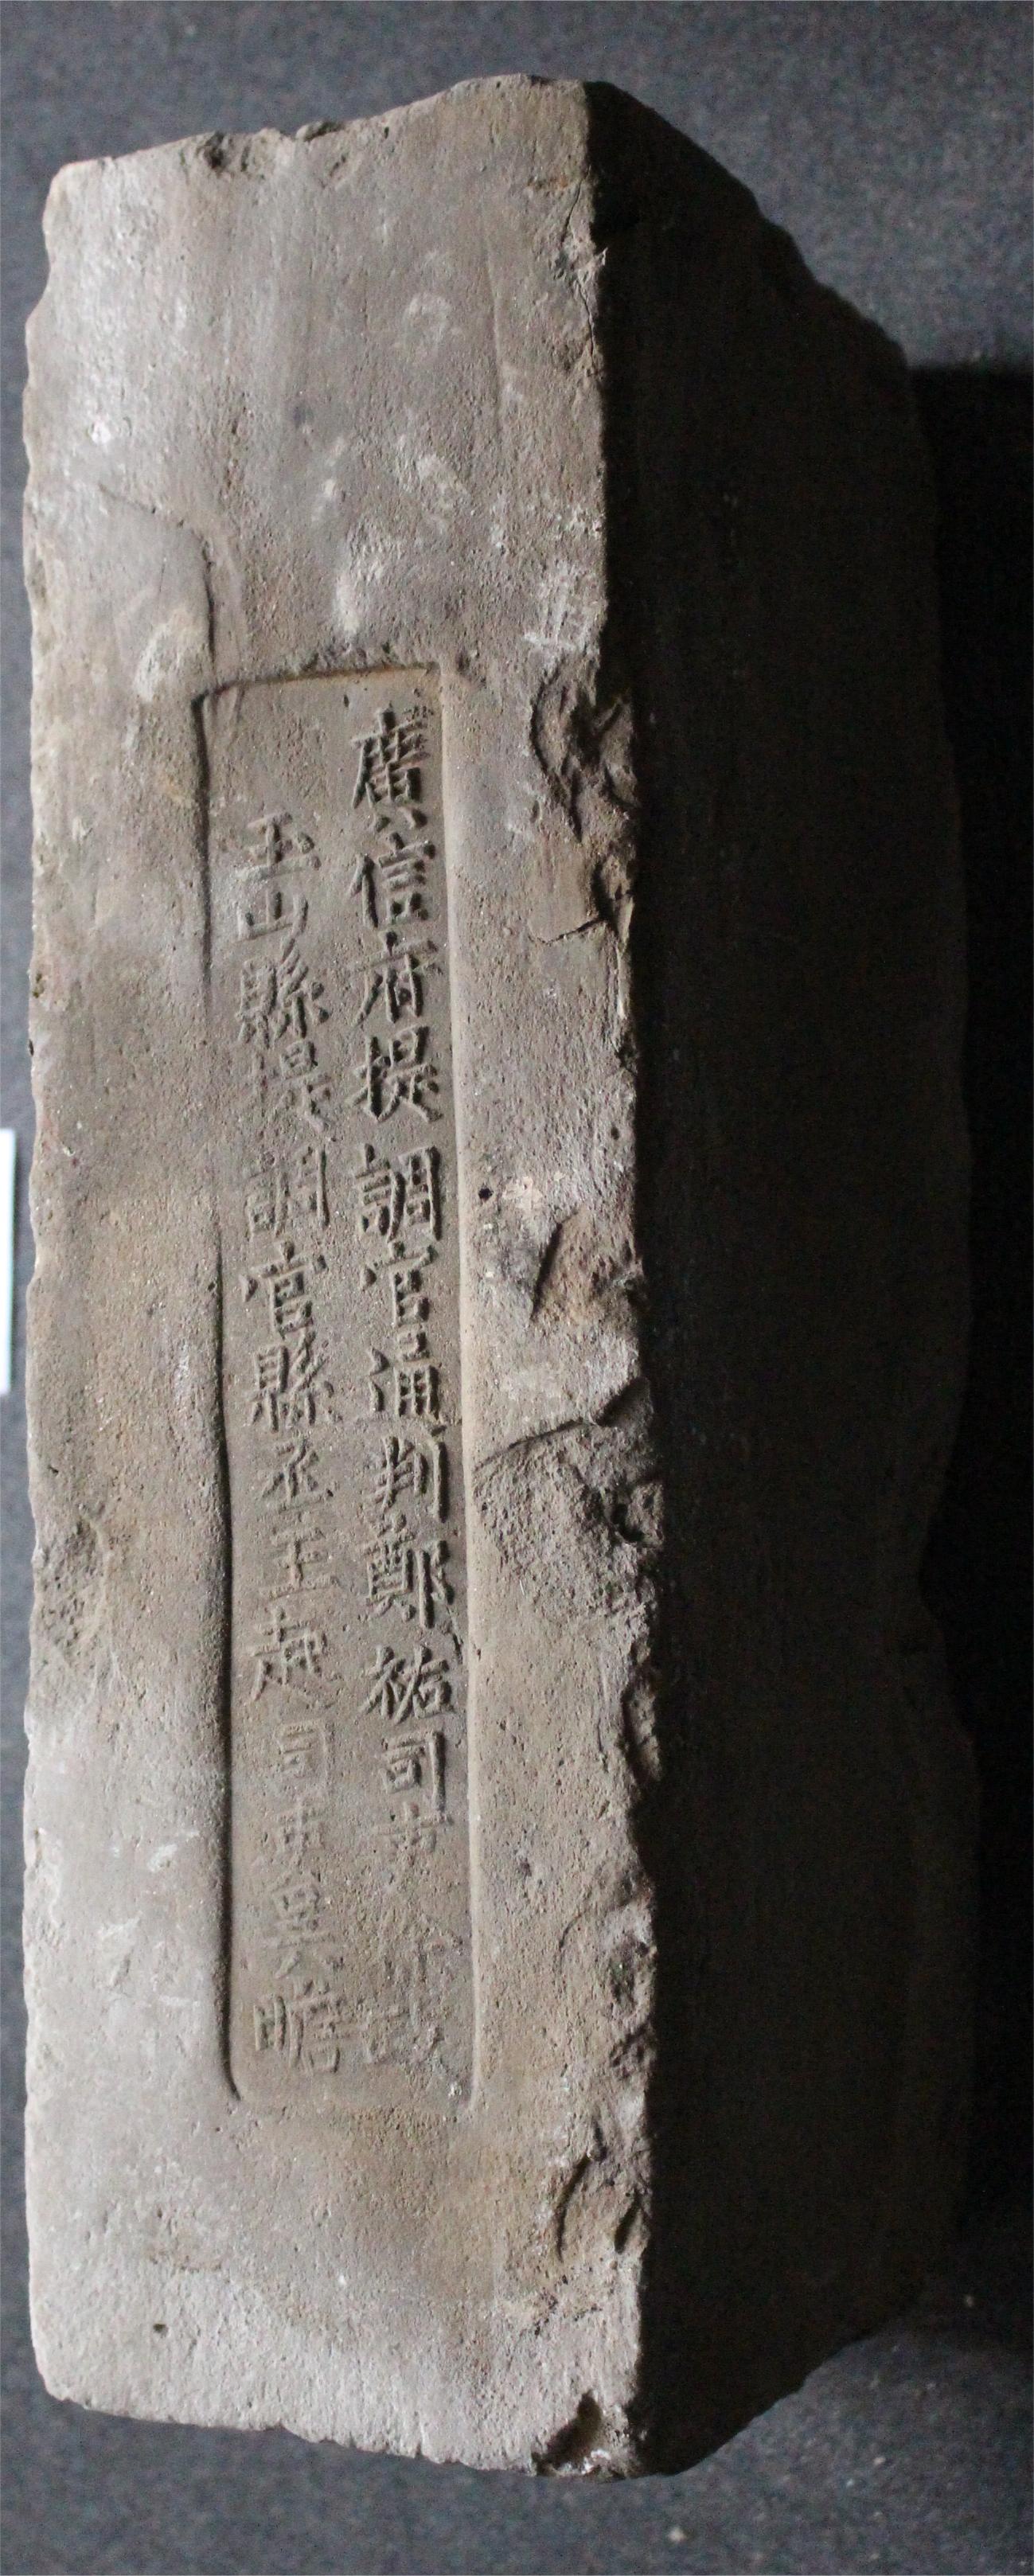 廣信府提調官通判鄭祐司吏徐
玉山縣提調官縣丞王赴司吏吳瞻